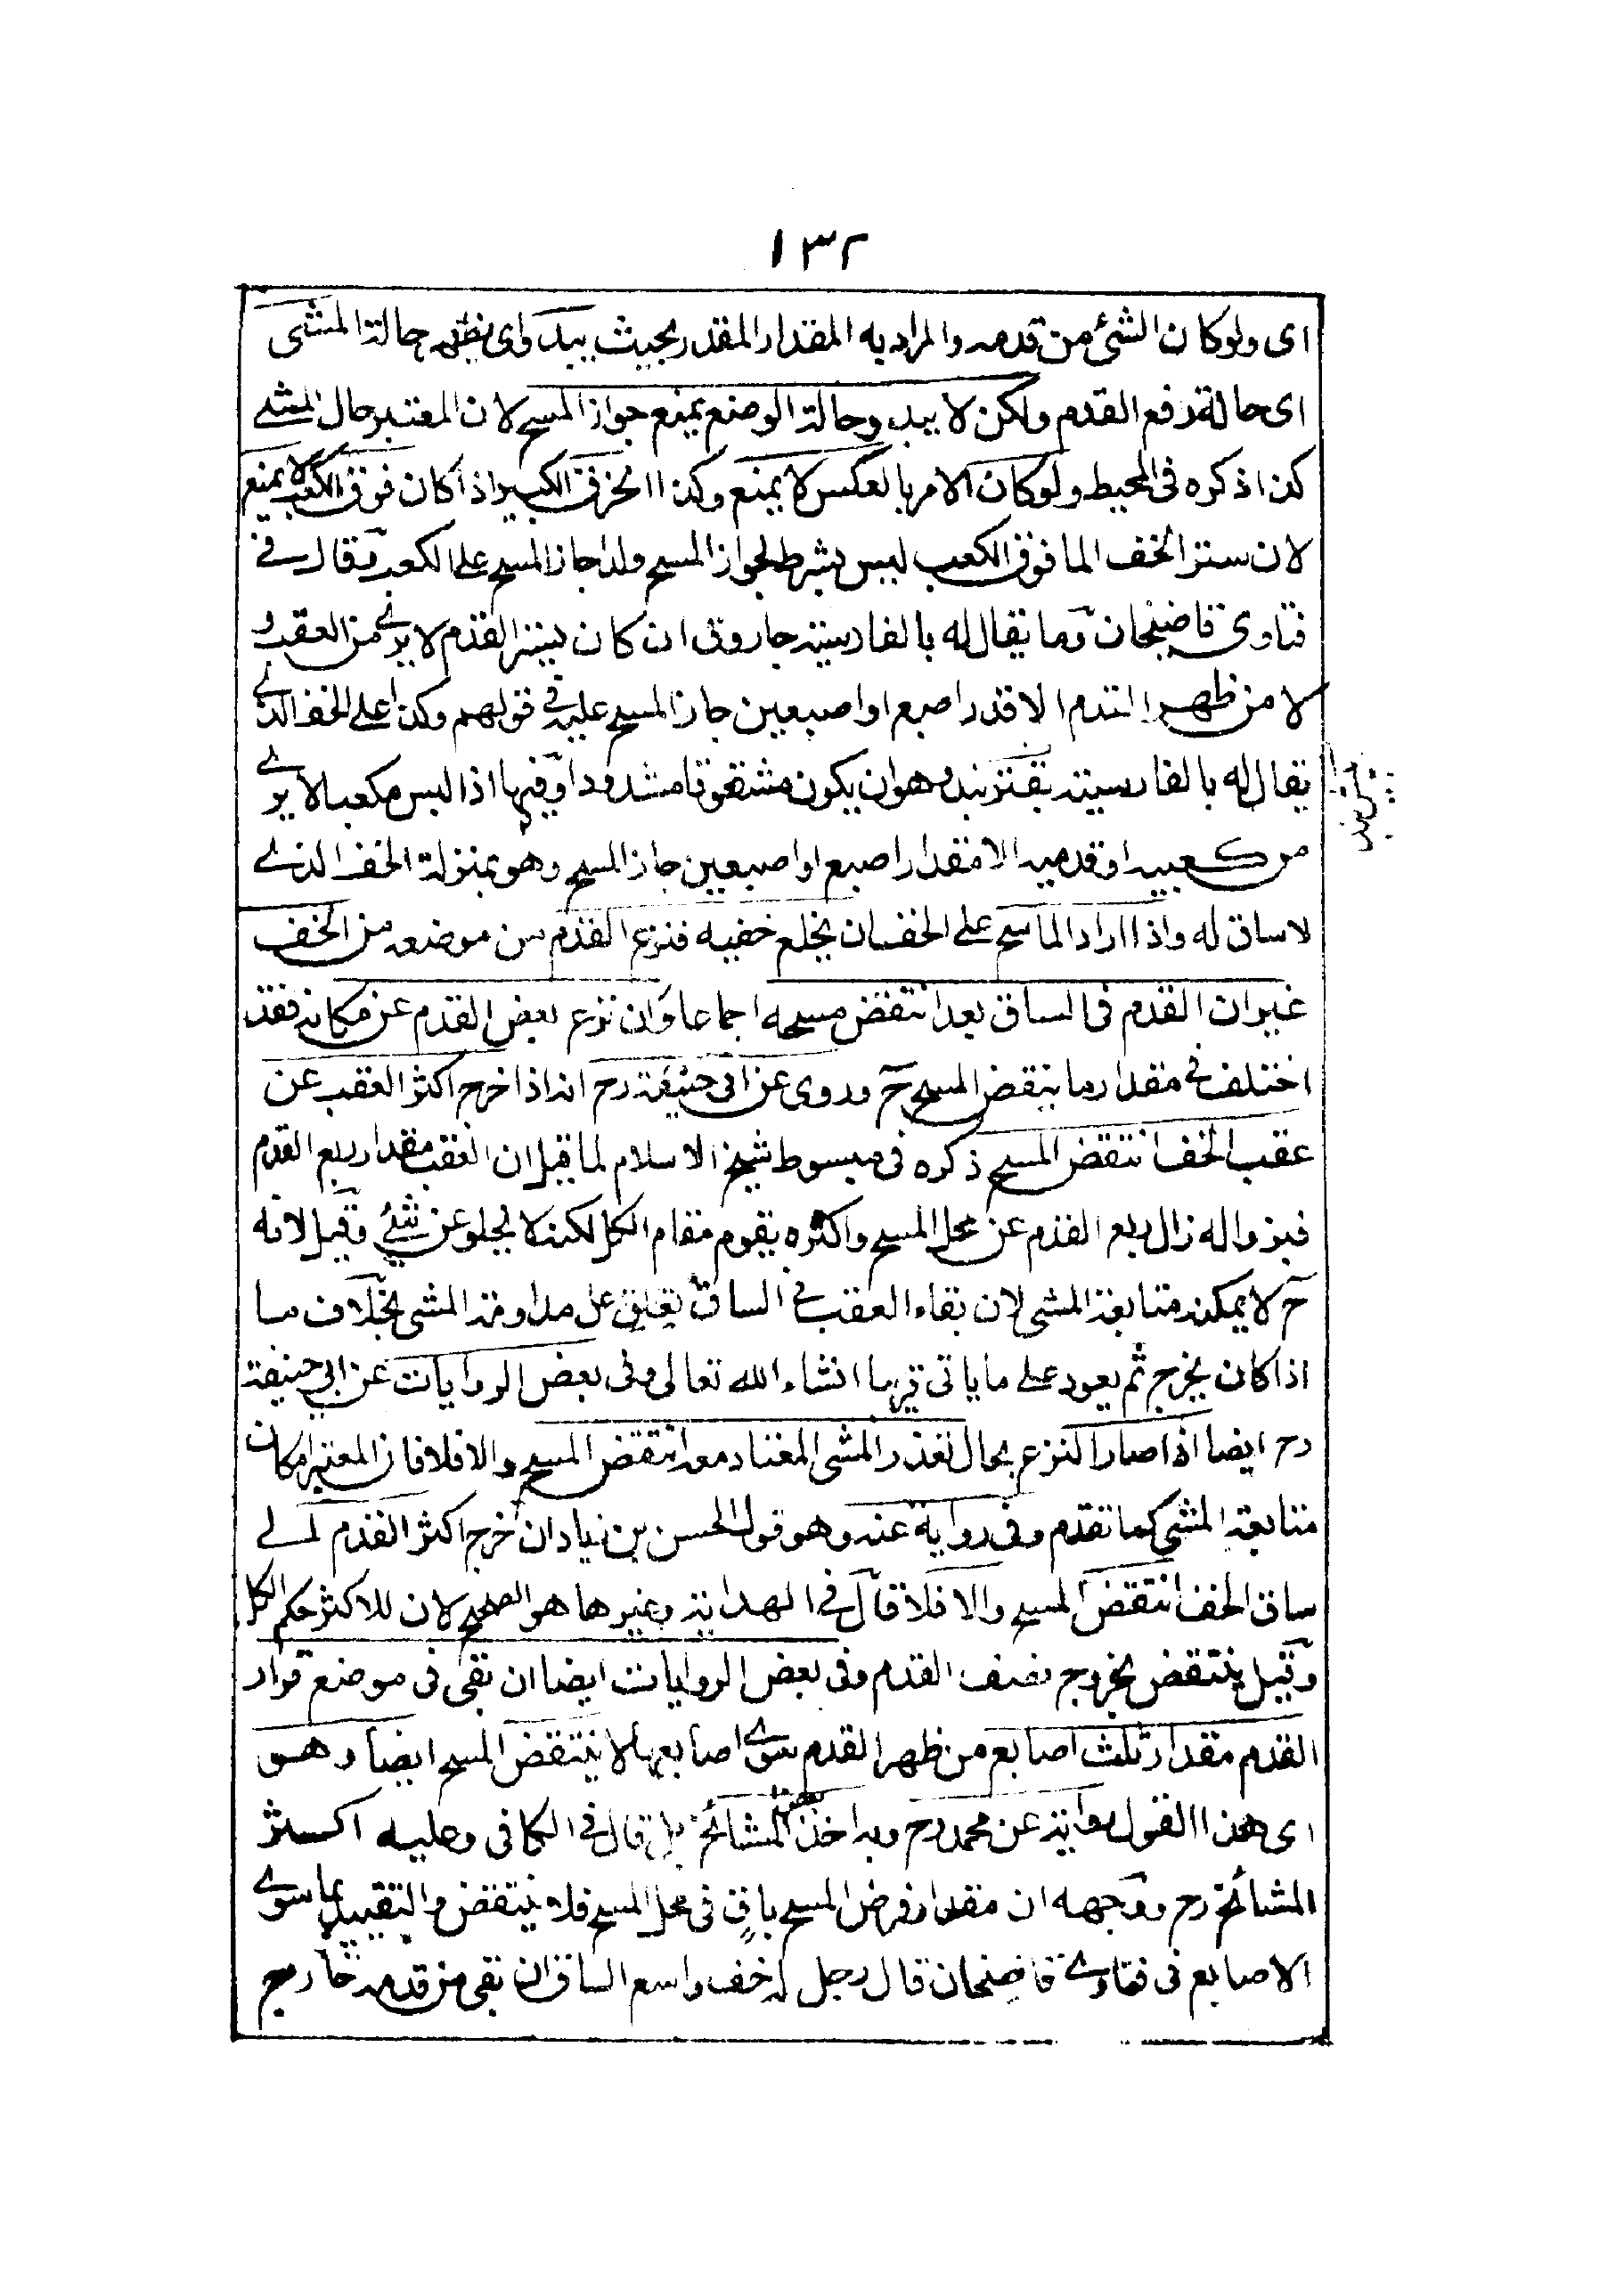 ١٣٢
اى ولو كان الشئ من قدمه والمراد به المقدار المقدر بحيث يبدو اى يظهر حالة المشى
اى حالة رفع القدم ولكن لا يبدو حالة الوضع يمنع جواز المسح لان المعتبر حال المشے
كذا ذكره فى المحيط ولو كان الامر بالعكس لا يمنع وكذا الخرق الكبير اذا كان فوق الكعب لا يمنع
لان ستر الخف الما فوق الكعب ليس بشرط لجواز المسح ولذا جاز المسح على الكعب وقال فے
فتاوى قاضيخان وما يقال له بالفارسية جاروق ان كان يستر القدم لا يرے من العقب و
لا من ظهر القدم الا قدر اصبع او اصبعين جاز المسح عليه فى قولهم وكذا على الخف الذے
يقال له بالفارسية بقترنبد وهو ان يكون مشقوقا مشدودا وفيها اذا لبس مكعبا لا يرے
من كعبيه او قدميه الا مقدار اصبع او اصبعين جاز المسح وهو بمنزلة الخف الذے
لا ساق له واذا اراد الماسح على الخفسان يخلع خفيه فنزع القدم من موضعه من الخف
غير ان القدم فى الساق بعد انتقض مسحه اجماعا وان نزع بعض القدم عن مكانه فقد
اختلف فى مقدار ما ينتقض المسح ح وروى عن ابى حنيفة رح انه اذا خرج اكثر العقب عن
عقب الخف انتقض المسح ذكره فى مبسوط شيخ الاسلام لما قيل ان العقب مقدار ربع القدم
فبزواله زال ربع القدم عن محل المسح واكثره يقوم مقام الكل لكنه لا يخلو عن شئے وقيل لانه
ح لا يمكنه متابعة المشى لان بقاء العقب فے الساق تعلق عل مداومة المشى بخلاف ما
اذا كان يخرج ثم يعود على ما ياتى قريبا انشاء الله تعالى وفى بعض الروايات عن ابي حنيفة
رح ايضا اذا صار النزع بحال تعذر المشى المعتاد معه انتقض المسح والا فلا فان المعتبر امكان
متابعة المشى كما تقدم وفى رواية عنه وهو قول الحسن بن زياد ان خرج اكثر القدم الے
ساق الخف انتقض المسح والا فلا قال فى الهداية وغيرها هو الصحيح لان للاكثر حكم الكل
وقيل ينتقض بخروج نصف القدم وفى بعض الروايات ايضا ان بقى فى موضع قرار
القدم مقدار ثلث اصابع من ظهر القدم سوے اصابعها لا ينتقض المسح ايضا وهو
اى هذا القول رواية عن محمد رح وبه اخذ بعض المشائخ بل قال فى الكافى وعليه اكثر
المشائخ رح ووجهه ان مقدار فرض المسح باق فى محل المسح فلا ينتقض والتقييد بما سوے
الاصابع فى فتاوے قاضيخان قال رجل له خف واسع الساق ان بقى من قدمه خارج